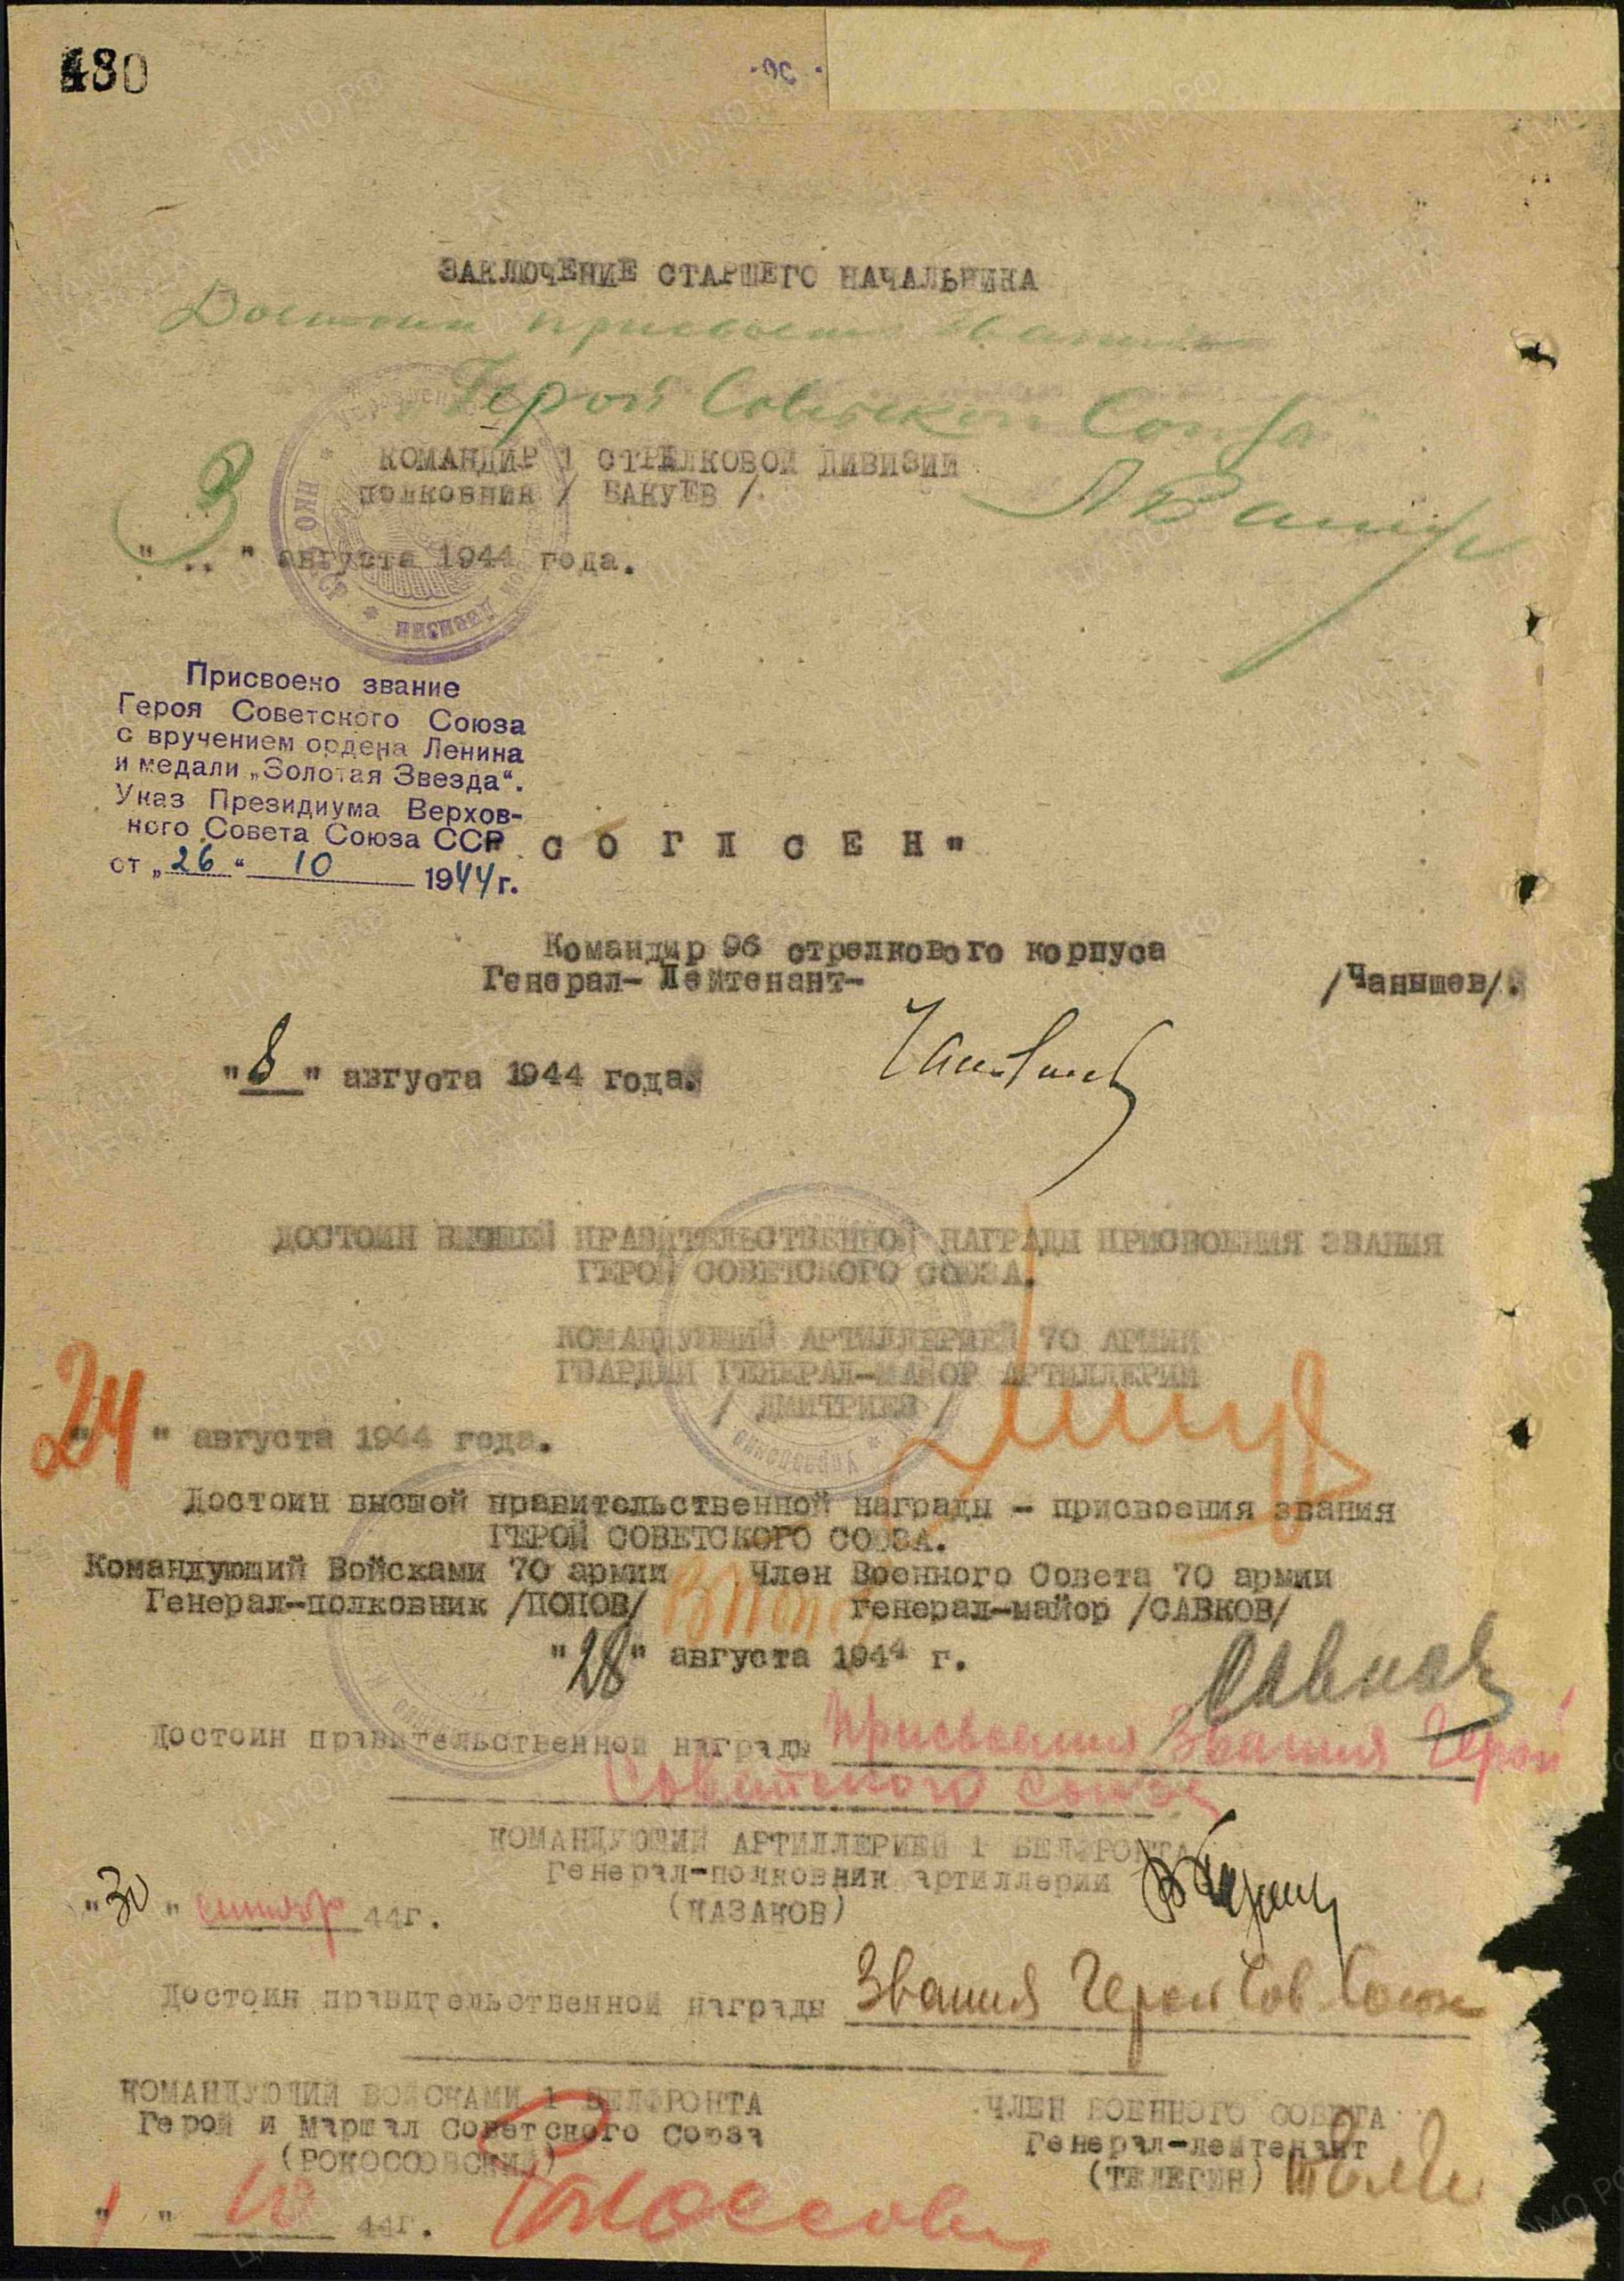 480
ЗАКЛЮЧЕНИЕ СТАРШЕГО НАЧАЛЬНИКА
Достоин присвоения звания
"Герой Советского Союза"
КОМАНДИР 1 СТРЕЛКОВОЙ ДИВИЗИИ
полковник / ВАКУЕВ /.
"3" августа 1944 года.
дивизии
Присвоено звание
Героя Советского Союза
с вручением ордена Ленина
и медали „Золотая Звезда“.
Указ Президиума Верхов-
ного Совета Союза ССР
от „26“ 10 1944 г.
С О Г Л С Е Н"
Командир 96 стрелкового корпуса
Генерал-Лейтенант- /Чанышев/.
"8" августа 1944 года.
ДОСТОИН ВЫСШЕЙ ПРАВИТЕЛЬСТВЕННОЙ НАГРАДЫ ПРИСВОЕНИЯ ЗВАНИЯ
ГЕРОЙ СОВЕТСКОГО СОЮЗА.
КОМАНДУЮЩИЙ АРТИЛЛЕРИЕЙ 70 АРМИИ
ГВАРДИИ ГЕНЕРАЛ-МАЙОР АРТИЛЛЕРИИ
/ ДМИТРИЕВ /
"24" августа 1944 года.
Достоин высшей правительственной награды - присвоения звания
ГЕРОЙ СОВЕТСКОГО СОЮЗА.
Командующий Войсками 70 армии Член Военного Совета 70 армии
Генерал-полковник /ПОПОВ/ генерал-майор /САВКОВ/
"28" августа 1944 г.
Савков
Достоин правительственной награды присвоения звания Герой
Советского Союза
КОМАНДУЮЩИЙ АРТИЛЛЕРИЕЙ 1 БЕЛФРОНТА
Генерал-полковник артиллерии
(КАЗАКОВ)
"30" сентября 44г.
Достоин правительственной награды звания Героя Сов. Союза
КОМАНДУЮЩИЙ ВОЙСКАМИ 1 БЕЛФРОНТА ЧЛЕН ВОЕННОГО СОВЕТА
Герой и Маршал Советского Союза Генерал-лейтенант
(РОКОССОВСКИЙ) (ТЕЛЕГИН)
"1" 10 44г.